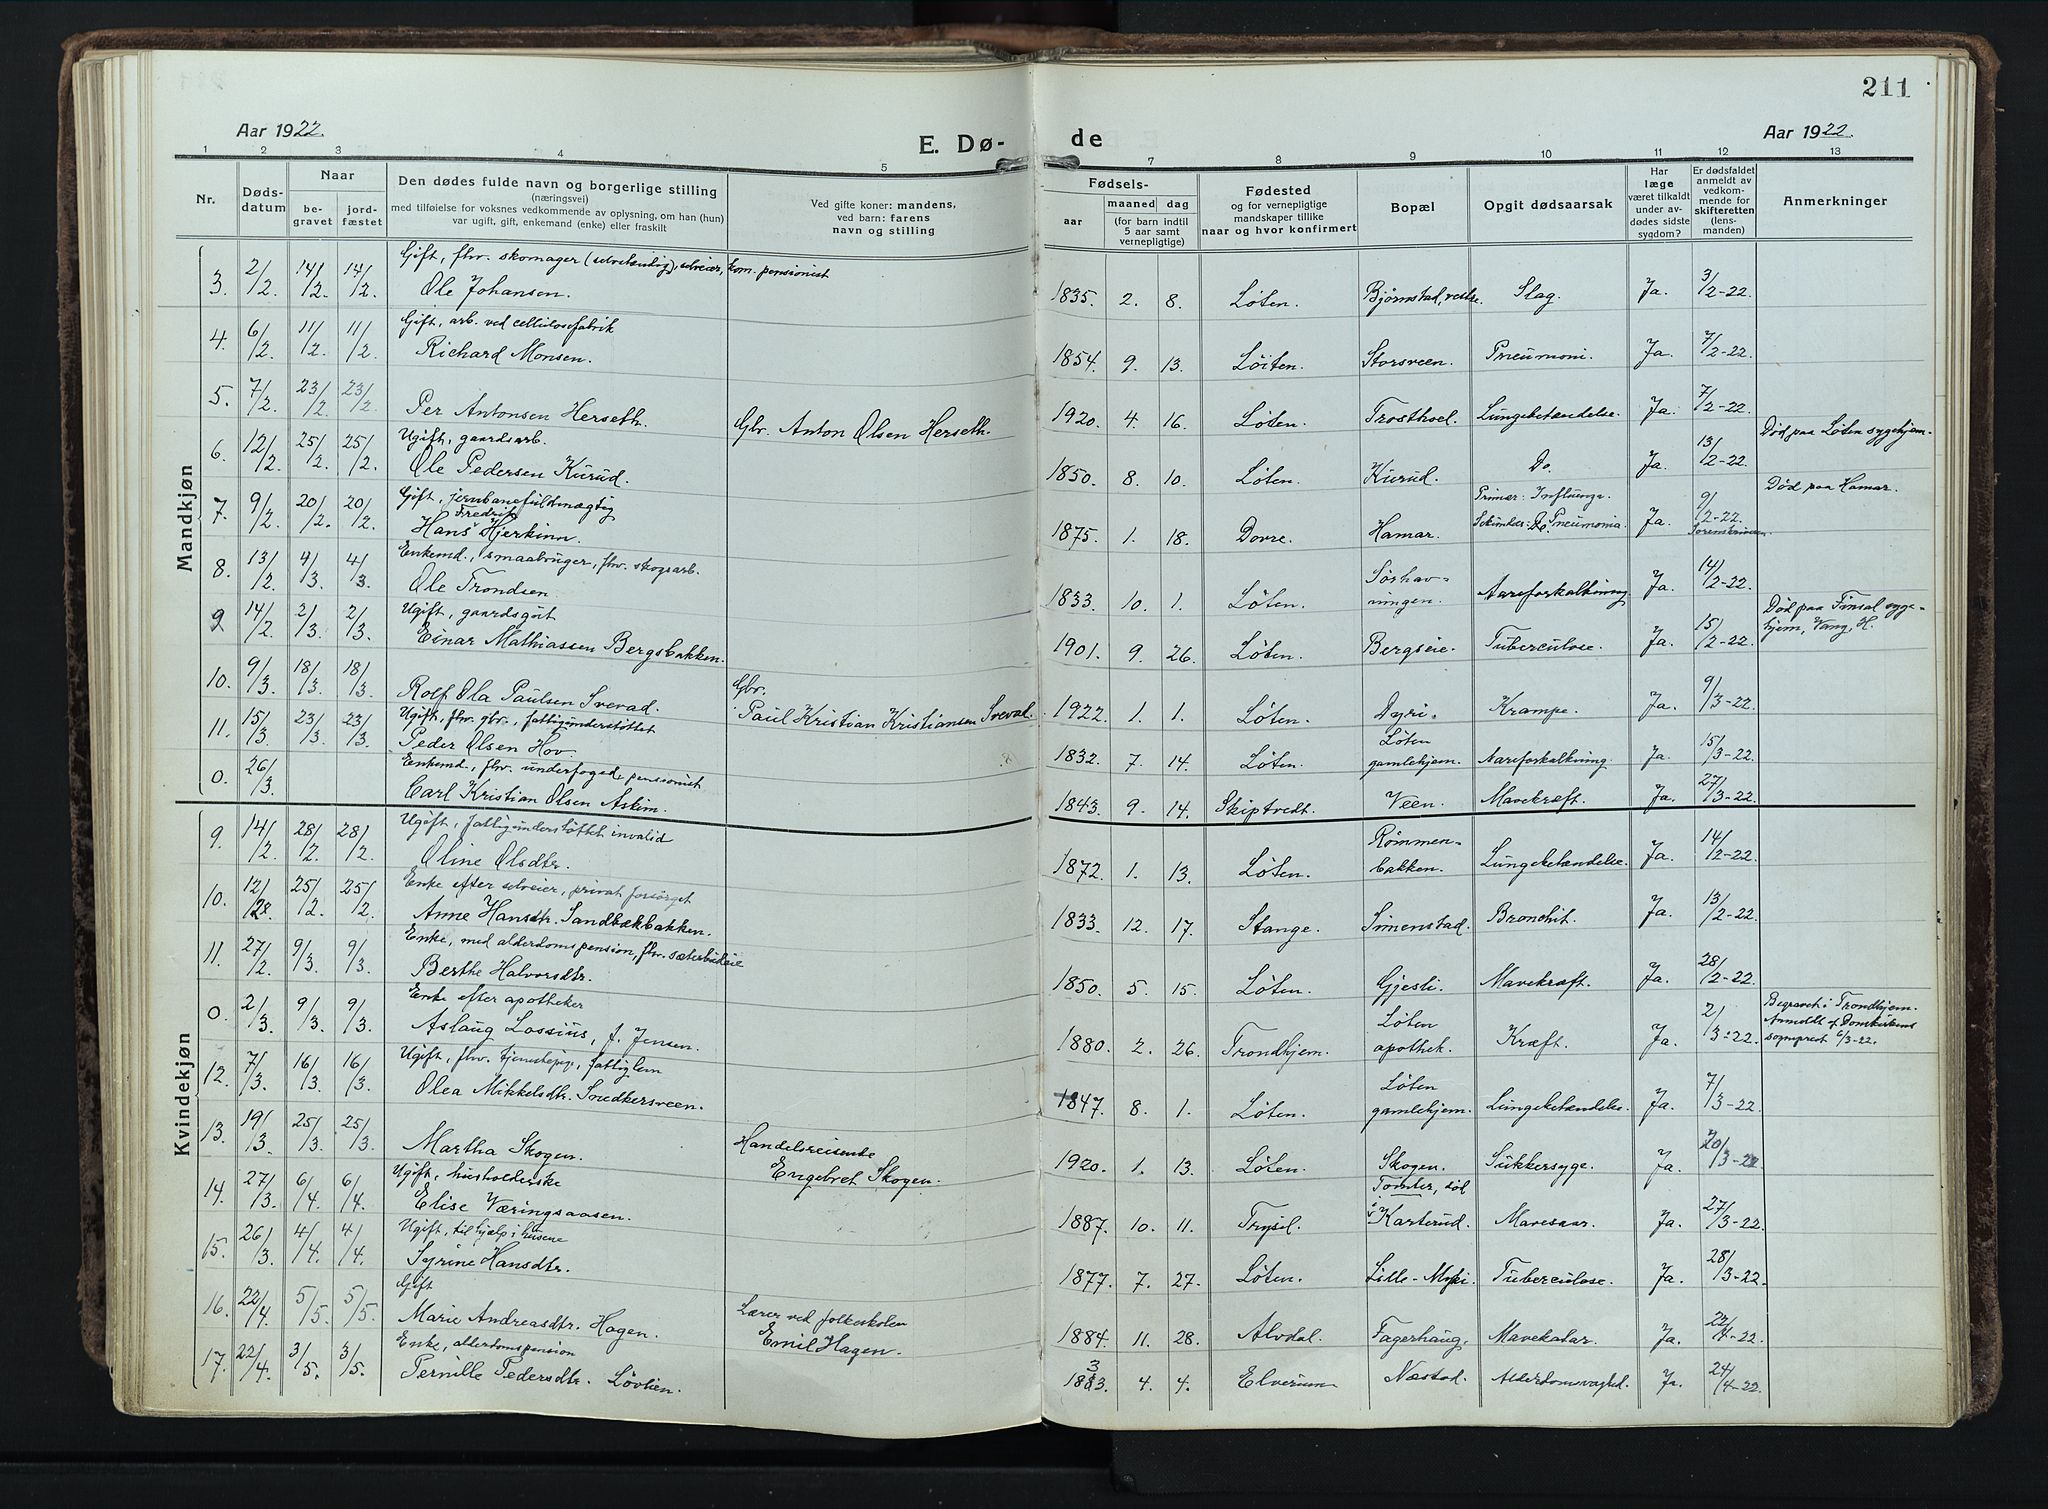 211
Aar 1922.
E. Dø-
de
Aar 1922.
1 2 3 4 5 7 8 9 10 11 12 13
Nr.
Døds-
datum
Naar
be-
gravet
jord-
fæstet
Den dødes fulde navn og borgerlige stilling
(næringsvei)
med tilføielse for voksnes vedkommende av oplysning, om han (hun)
var ugift, gift, enkemand (enke) eller fraskilt
Ved gifte koner: mandens,
ved barn: farens
navn og stilling
Fødsels-
aar
maaned dag
(for barn indtil
5 aar samt
vernepligtige)
Fødested
og for vernepligtige
mandskaper tillike
naar og hvor konfirmert
Bopæl
Opgit dødsaarsak
Har
læge
været tilkaldt
under av-
dødes sidste
sygdom?
Er dødsfaldet
anmeldt av
vedkom-
mende for
skifteretten
(lens-
manden)
Anmerkninger
Mandkjøn
Gift, fhv. skomager (selvstændig), selveier, kom. pensionist
3. 2/2. 14/2. 14/2. Ole Johansen. 1835. 2. 8. Løten. Bjørnstad, vestre. Slag. Ja. 3/2-22.
Gift, arb. ved cellulosefabrik
4. 6/2. 11/2. 11/2. Richard Monsen. 1854. 9. 13. Løiten. Storsveen. Pneumoni. Ja. 7/2-22.
5. 7/2. 23/2. 23/2. Per Antonsen Herseth. Gbr. Anton Olsen Herseth. 1920. 4. 16. Løten. Trosthoel. Lungebetændelse. Ja. 7/2-22.
Ugift, gaardsarb. Død paa Løten sygehjem.
6. 12/2. 25/2. 25/2. Ole Pedersen Kurud. 1850. 8. 10. Løten. Kurud. Do. Ja. 13/2-22.
Gift, jernbanefuldmægtig Primær: Influenza. Død paa Hamar.
Fredrik
7. 9/2. 20/2. 20/2. Hans Hjerkinn. 1875. 1. 18. Dovre. Hamar. Sekundær: Do. Pneumonia. Ja. 9/2-22.
Sorenskriveren
Enkemd., smaabruger, fhv. skogsarb. Sørhav-
8. 13/2. 4/3. 4/3. Ole Trondsen. 1833. 10. 1. Løten. ningen. Aareforkalkning Ja. 14/2-22.
Ugift, gaardsgut Død paa Finsal syge-
hjem, Vang, H.
9. 14/2. 2/3. 2/3. Einar Mathiassen Bergsbakken. 1901. 9. 26. Løten. Bergseie. Tuberculose. Ja. 15/2-22.
Gbr.
10. 9/3. 18/3. 18/3. Rolf Ola Paulsen Svevad. Paul Kristian Kristiansen Svevad. 1922. 1. 1. Løten. Dyri. Krampe. Ja. 9/3-22.
Ugift, fhv. gbr., fattigunderstøttet Løten
11. 15/3. 23/3. 23/3. Peder Olsen Hov 1832. 7. 14. Løten. gamlehjem. Aareforkalkning. Ja. 15/3-22.
Enkemd., fhv. underfoged, pensionist
0. 26/3. Carl Kristian Olsen Askim. 1843. 9. 14. Skiptvedt. Veen. Mavekræft. Ja. 27/3-22.
Kvindekjøn
Ugift, fattigunderstøttet invalid Rømmen-
9. 14/2. 28/2. 28/2. Oline Olsdtr. 1872. 1. 13. Løten. bakken. Lungebetændelse. Ja. 14/2-22.
Enke efter selveier, privat forsørget
10. 12/2. 25/2. 25/2. Anne Hansdtr. Sandbækbakken. 1833. 12. 17. Stange. Simenstad. Bronchit. Ja. 13/2-22.
Enke, med alderdomspension, fhv. sæterbudeie
11. 27/2. 9/3. 9/3. Berthe Halvorsdtr. 1850. 5. 15. Løten. Gjesli. Mavekræft. Ja. 28/2-22.
Enke efter apotheker Løten Begravet i Trondhjem.
Anmeldt f. Domkirkens
sogneprest 6/3-22.
0. 2/3. 9/3. 9/3. Aslaug Lossius, f. Jensen. 1880. 2. 26. Trondhjem. apothek. Kræft. Ja. 2/3-22.
Ugift, fhv. tjenestepige, fattiglem Løten
12. 7/3. 16/3. 16/3. Olea Mikkelsdtr. Snedkersveen. 1847. 8. 1. Løten. gamlehjem. Lungebetændelse. Ja. 7/3-22.
Handelsreisende
13. 19/3. 25/3. 25/3. Martha Skogen. Engebret Skogen. 1920. 1. 13. Løten. Skogen. Sukkersyge. Ja. 20/3-22
Ugift, husholderske Tomter, død
14. 27/3. 6/4. 6/4. Elise Væringsaasen. 1887. 10. 11. Trysil. i Karterud. Mavesaar. Ja. 27/3-22.
Ugift, til hjelp i husene
15. 26/3. 4/4. 4/4. Syrine Hansdtr. 1877. 7. 27. Løten. Lille-Myri. Tuberculose. Ja. 28/3-22.
Gift Lærer ved folkeskolen
16. 22/4. 5/5. 5/5. Marie Andreasdtr. Hagen. Emil Hagen. 1884. 11. 28. Alvdal. Fagerhaug. Mavekatar. Ja. 22/4-22.
Enke, alderdomspension
17. 22/4. 3/5. 3/5. Pernille Pedersdtr. Løvlien. 1833. 4. 4. Elverum Næstad. Alderdomssvaghed. Ja. 24/4-22.